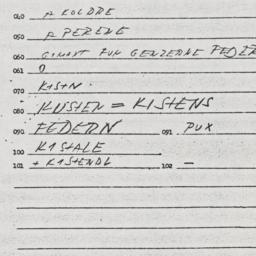 040 A KOLDRE
050 A PERENE
060 GINOT FUR GENZERNE FEDER
061 0
070 KISTN.
080 KUSIEN = KISTENS
090 FEDERN 091 PUX
100 KISTALE
101 + KISTENDL 102 —